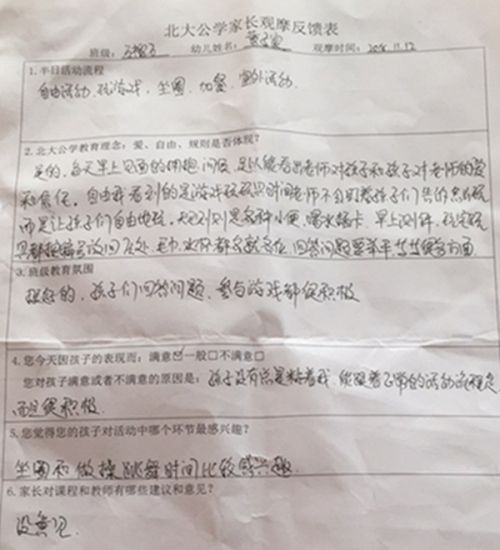 北大公学家长观摩反馈表
班级： 幼儿姓名： 观摩时间：
1.半日活动流程
自由活动、玩游戏、坐圈、加餐、室外活动
2.北大公学教育理念：爱、自由、规则是否体现？
是的，每天早上见面的拥抱问候，足以能看出老师对孩子和孩子对老师的爱
和信任。自由我看到的是游戏玩玩具时间老师不会盯着孩子们
而是让孩子们自由地玩。规则则是各种小便、喝水插卡、早上测体、玩完玩
具都 放回原处、毛巾、水杯都各就各位、回答问题要举手 等很多方面
3.班级教育氛围
挺好的，孩子们回答问题、参与游戏都很积极
4.您今天因孩子的表现而：满意☑一般□不满意□
您对孩子满意或者不满意的原因是：孩子没有总是粘着我，能跟着老师的活动流程走
而且很积极
5.您觉得您的孩子对活动中哪个环节最感兴趣？
坐圈和做操跳舞时间比较感兴趣
6.家长对课程和教师有哪些建议和意见？
没意见